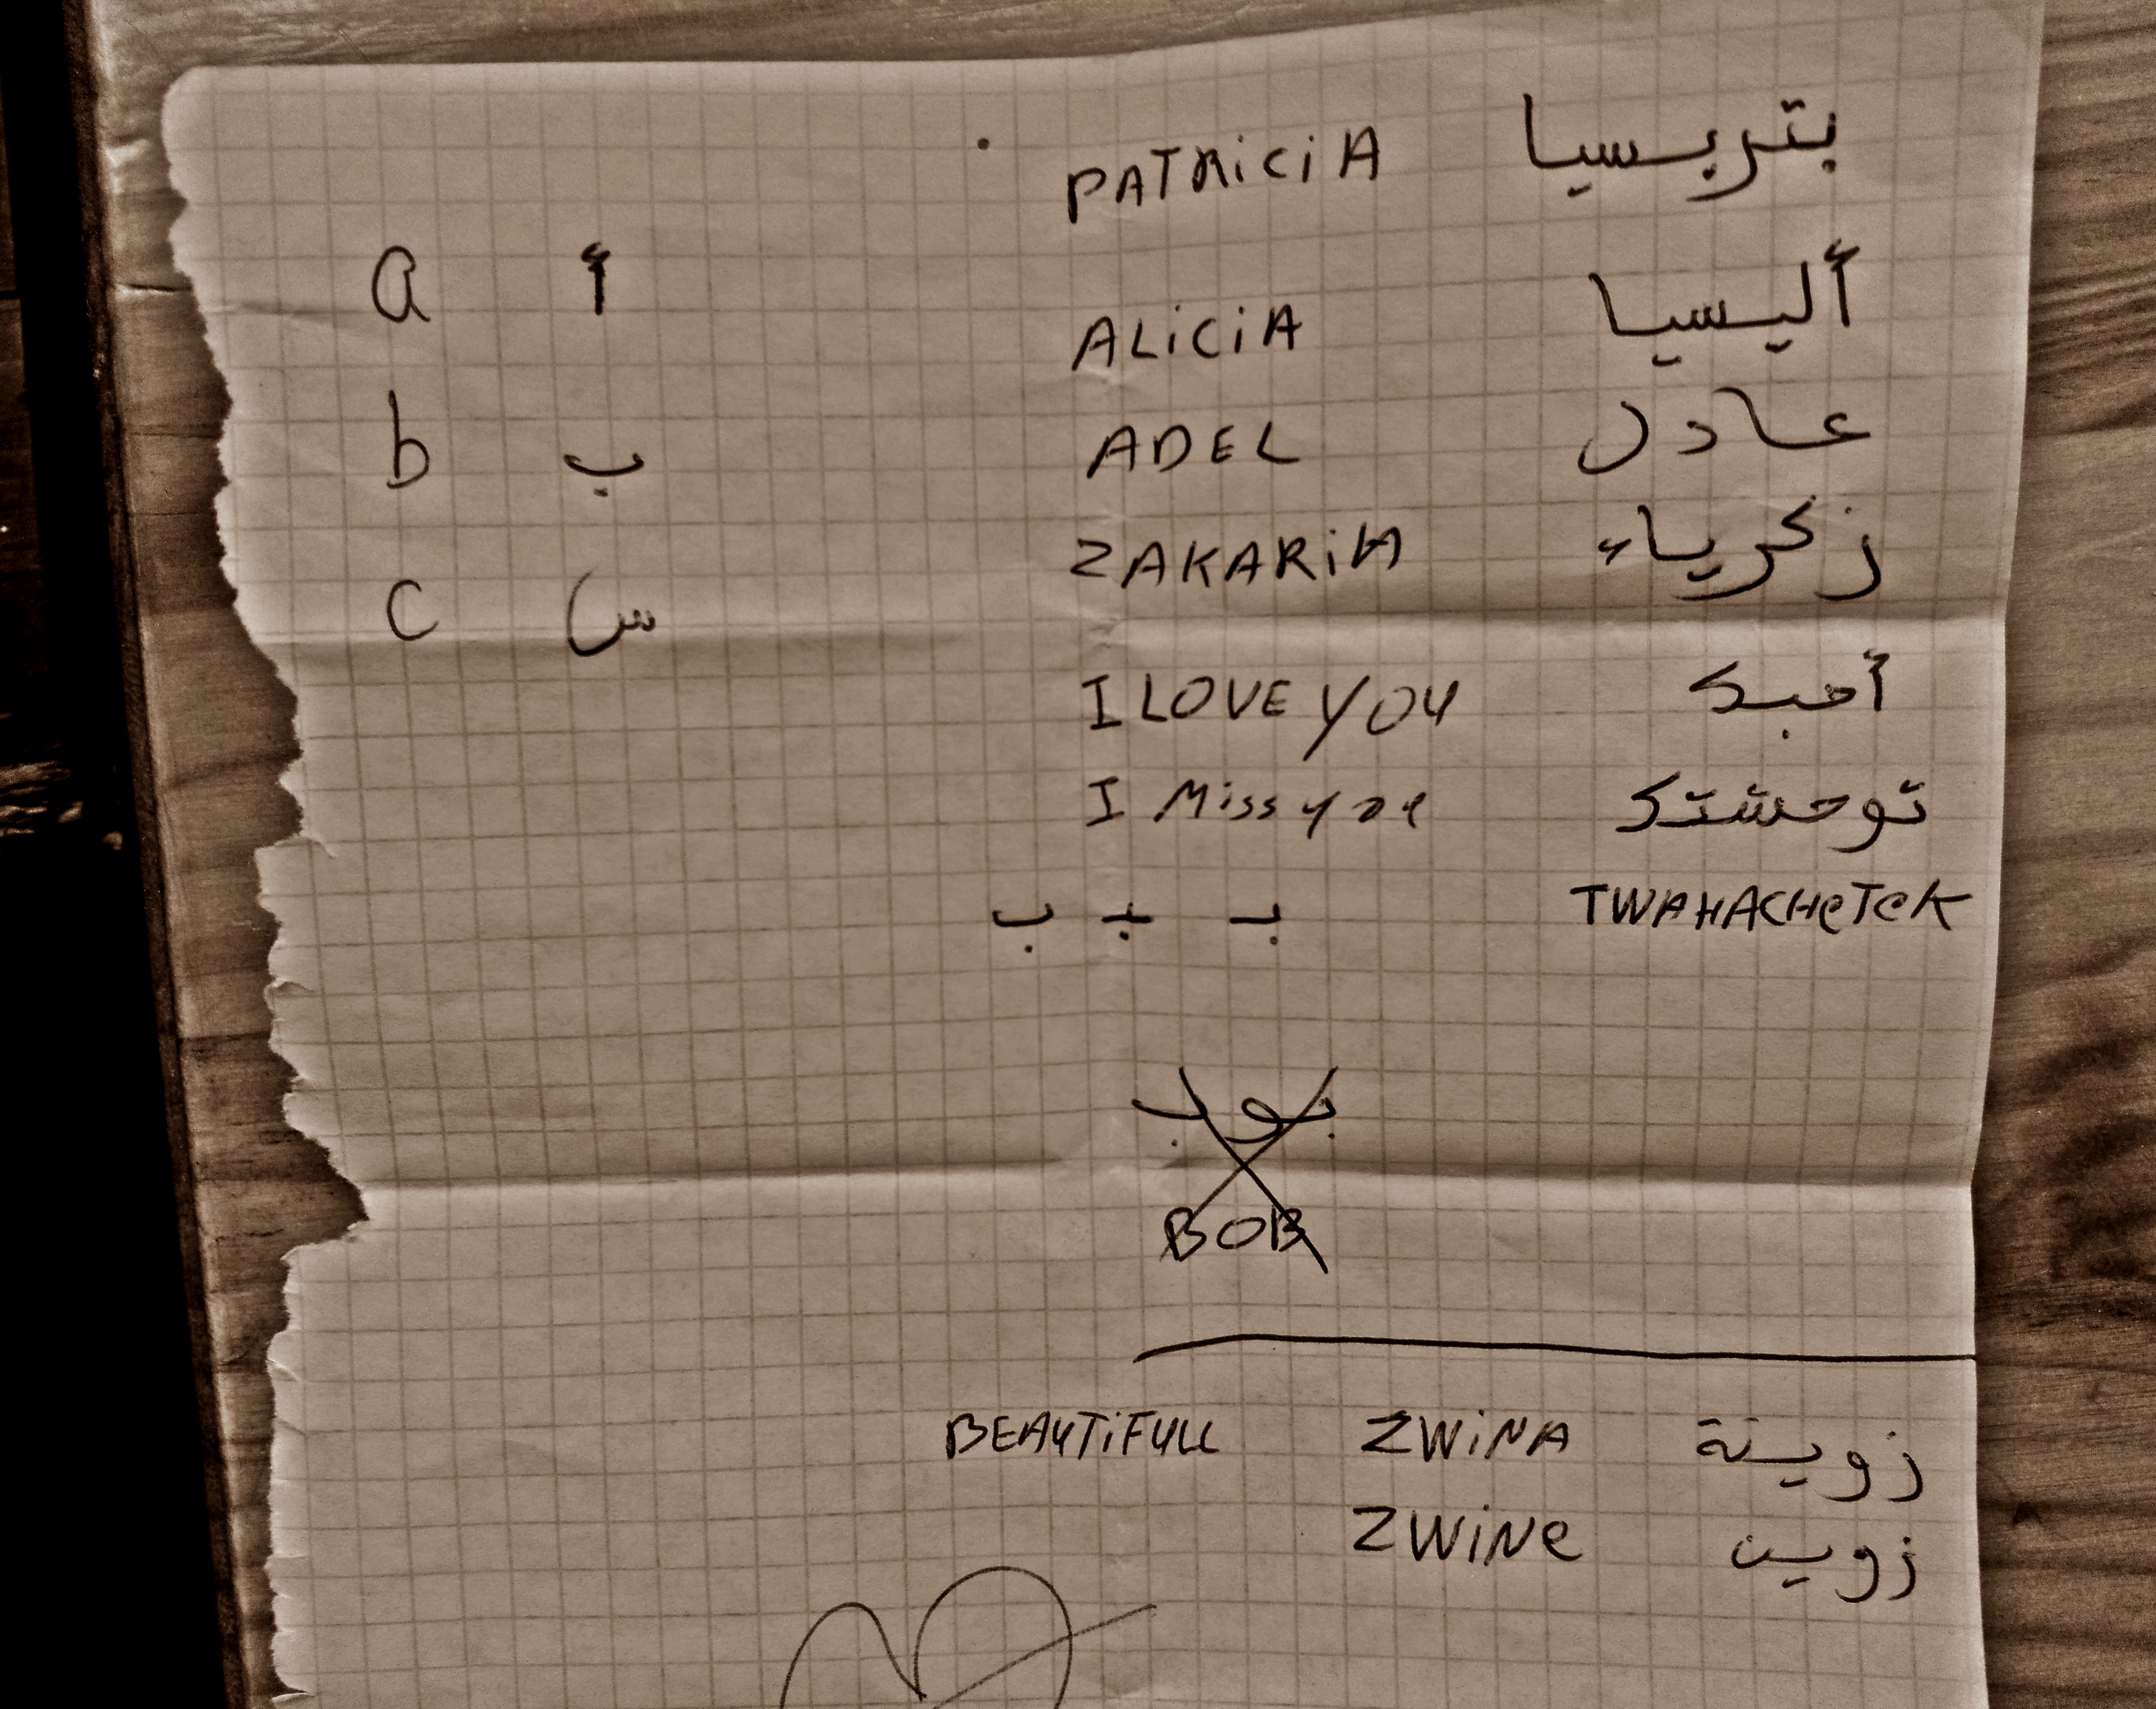 PATRiCiA بتريسيا
a أ
ALiCiA أليسيا
b ب ADEL عادل
ZAKARiA زكرياء
c س
I LOVE YOU أحبك
I Miss you توحشتك
ب ـبـ بـ TWAHACHeTeK
بوب
BOB
BEAUTiFULL ZWiNA زوينة
ZWiNe زوين